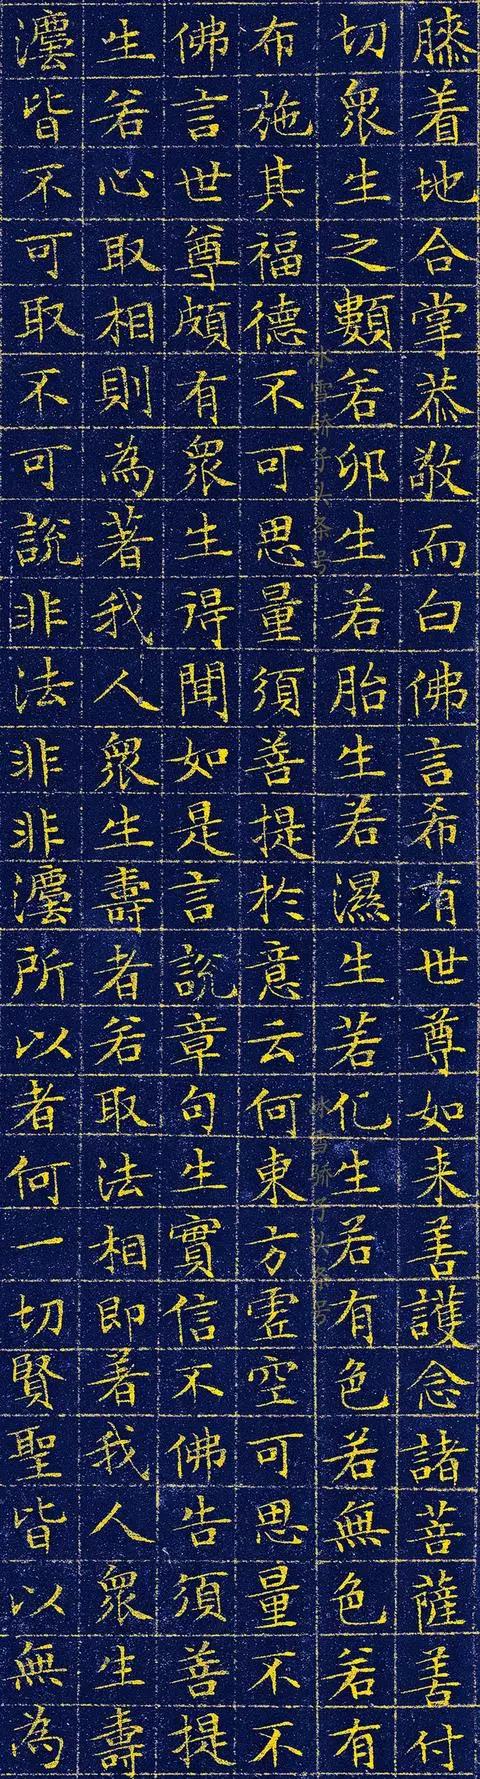 膝着地合掌恭敬而白佛言希有世尊如来善護念諸菩薩善付
切眾生之類若卵生若胎生若濕生若化生若有色若無色若有
布施其福德不可思量須菩提於意云何東方虛空可思量不不
佛言世尊頗有眾生得聞如是言說章句生實信不佛告須菩提
生若心取相則為著我人眾生壽者若取法相即著我人眾生壽
灋皆不可取不可說非法非非灋所以者何一切賢聖皆以無為
冰雪骄子头条号
冰雪骄子头条号